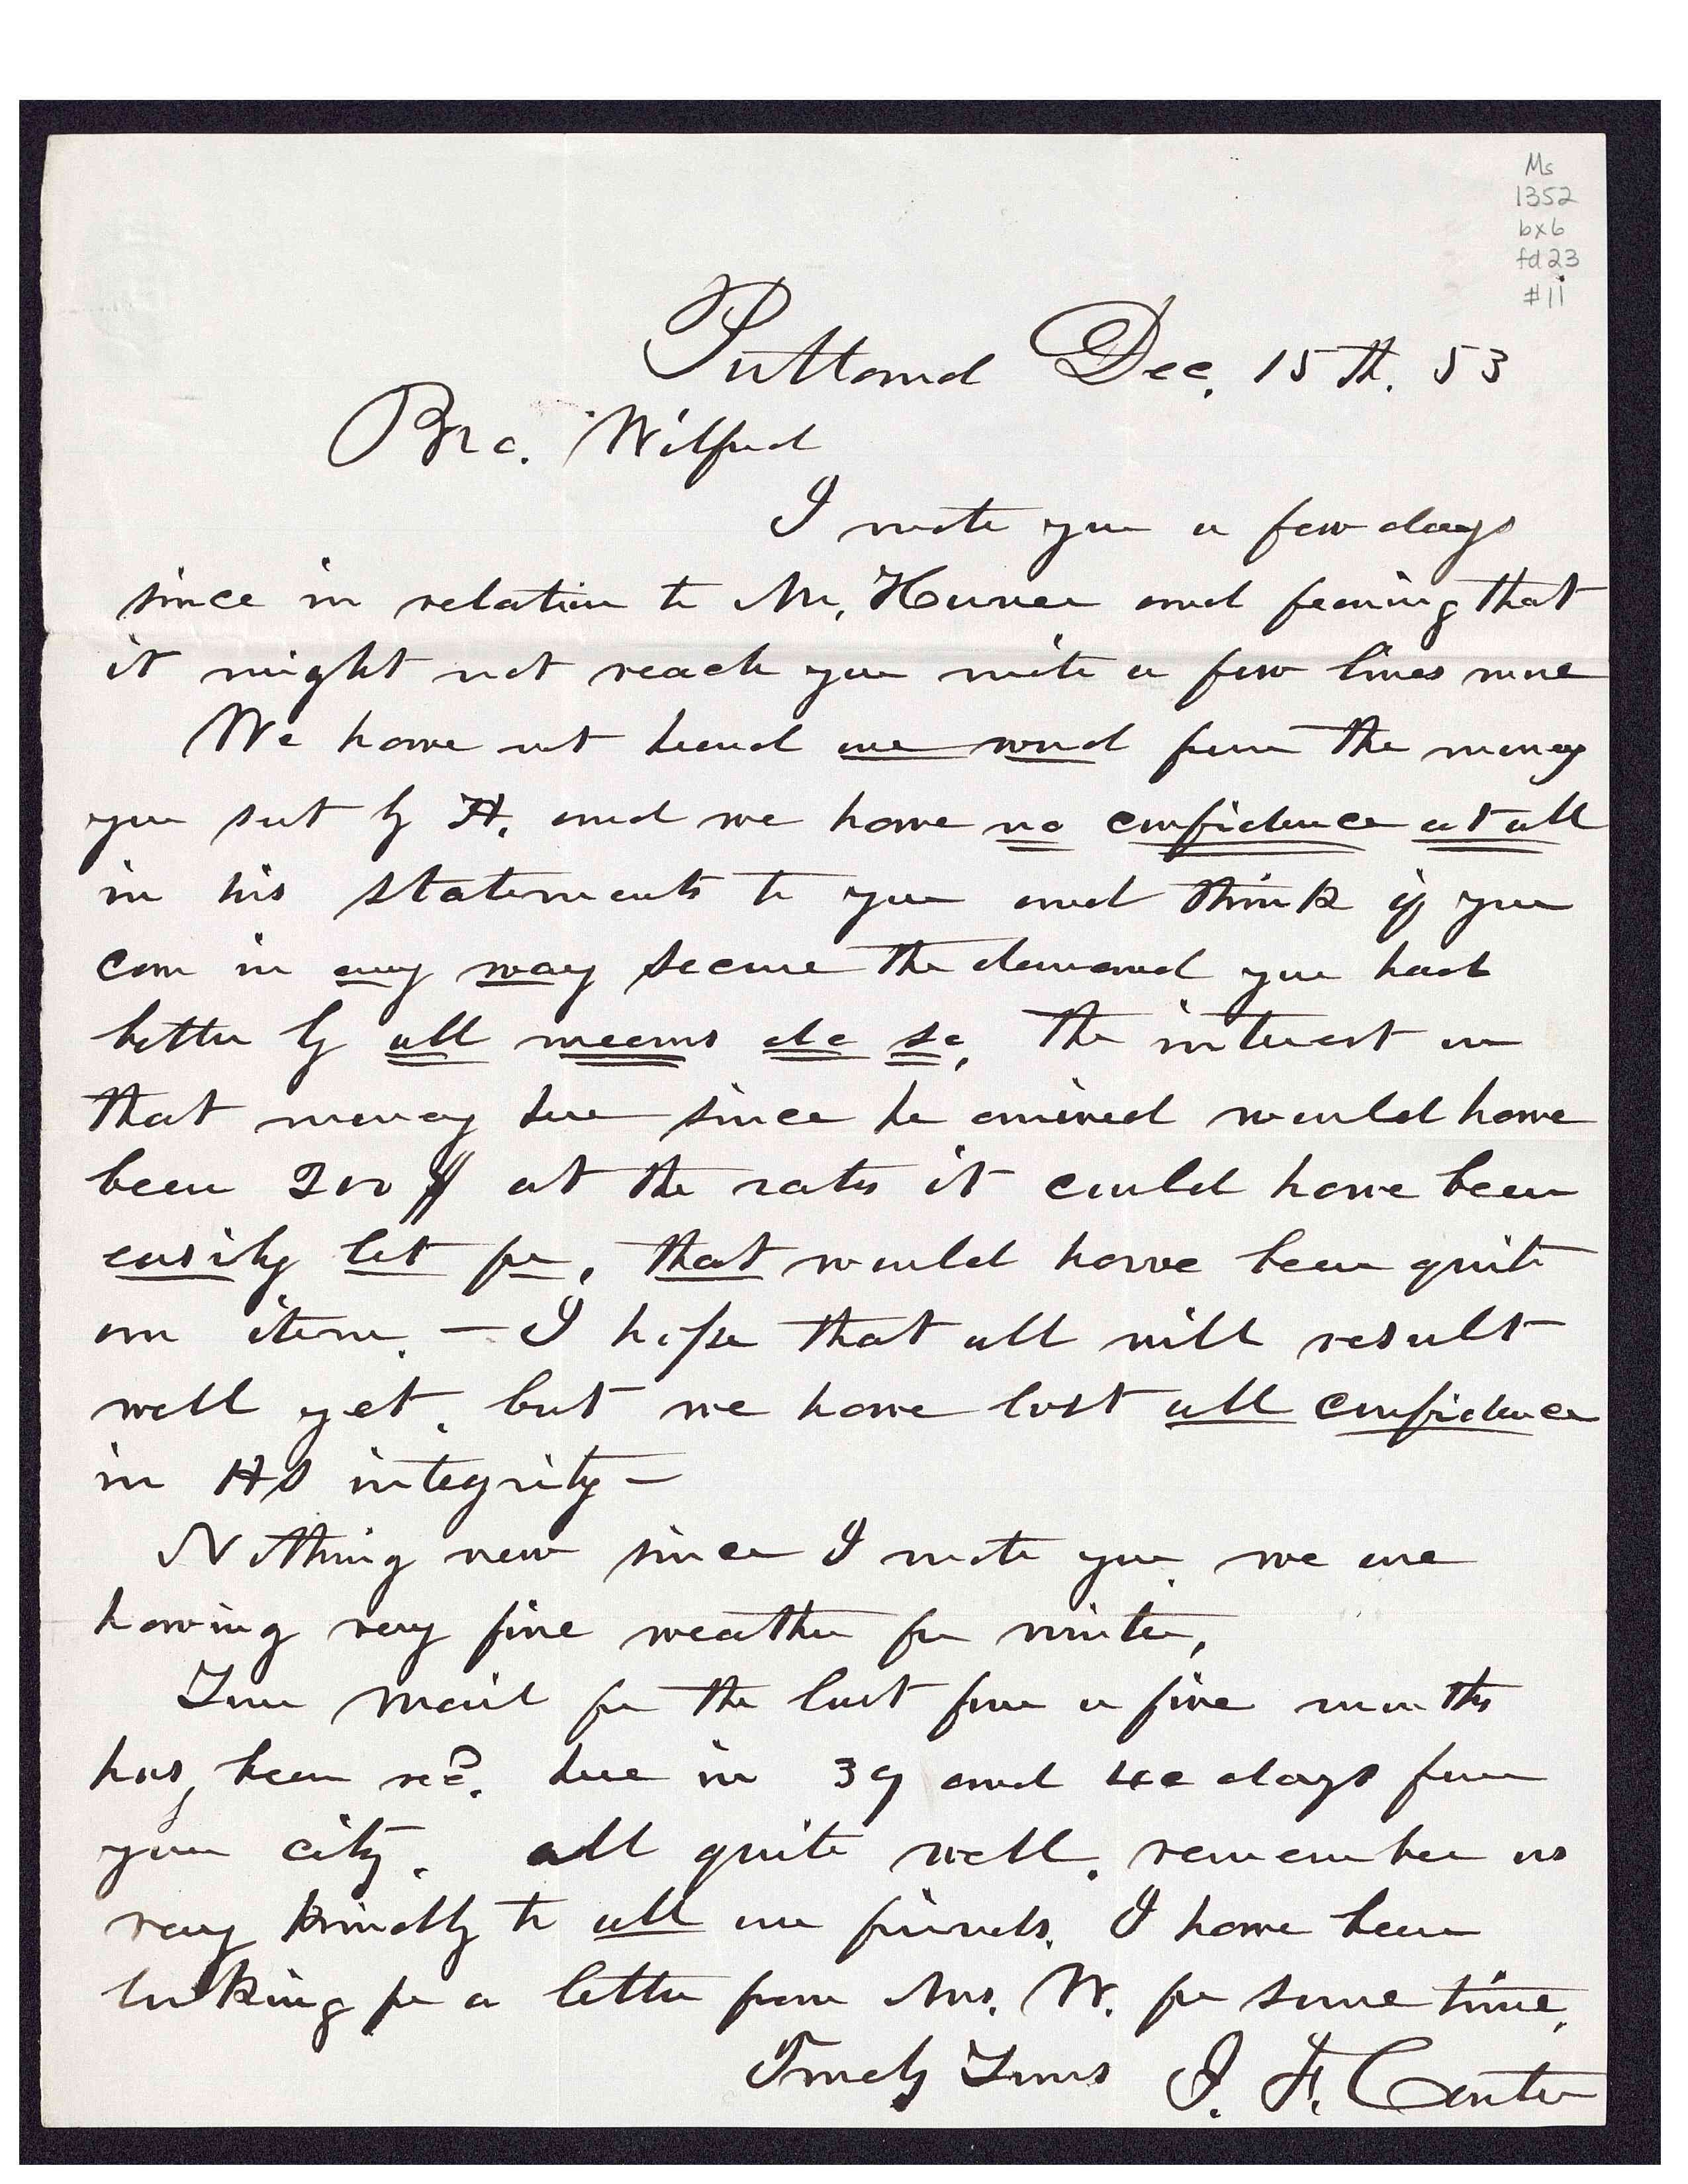 Ms
1352
bx6
fd23
#11
Portland Dec. 15th. 53
Bro. Wilford
I wrote you a few days
since in relation to Mr. and fearing that
it might not reach you write a few lines more
We have not heard one word from the money
you sent by H. and we have no confidence at all
in his statements to you and think if you
can in any way secure the demand you had
better by all means do so, The interest on
that money here since he arrived would have
been 200$ at the rates it could have been
easily let for, that would have been quite
an item. — I hope that all will result
well yet, but we have lost all confidence
in Hs integrity —
Nothing new since I wrote you. we are
having very fine weather for winter,
Your mail for the last four or five months
has, been recd. here in 39 and 40 days from
your city. all quite well. remember us
very kindly to all our friends. I have been
looking for a letter from Mrs. W. for some time.
Truly Yours